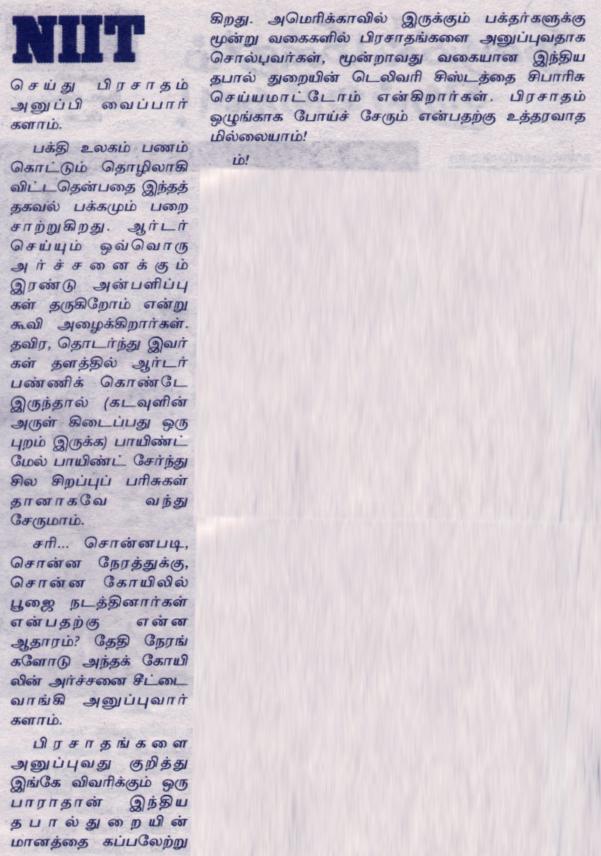 NIIT
செய்து பிரசாதம்
அனுப்பி வைப்பார்
களாம்.
பக்தி உலகம் பணம்
கொட்டும் தொழிலாகி
விட்டதென்பதை இந்தத்
தகவல் பக்கமும் பறை
சாற்றுகிறது. ஆர்டர்
செய்யும் ஒவ்வொரு
அர்ச்சனைக்கும்
இரண்டு அன்பளிப்பு
கள் தருகிறோம் என்று
கூவி அழைக்கிறார்கள்.
தவிர, தொடர்ந்து இவர்
கள் தளத்தில் ஆர்டர்
பண்ணிக் கொண்டே
இருந்தால் (கடவுளின்
அருள் கிடைப்பது ஒரு
புறம் இருக்க) பாயிண்ட்
மேல் பாயிண்ட் சேர்ந்து
சில சிறப்புப் பரிசுகள்
தானாகவே வந்து
சேருமாம்.
சரி... சொன்னபடி,
சொன்ன நேரத்துக்கு,
சொன்ன கோயிலில்
பூஜை நடத்தினார்கள்
என்பதற்கு என்ன
ஆதாரம்? தேதி நேரங்
களோடு அந்தக் கோயி
லின் அர்ச்சனை சீட்டை
வாங்கி அனுப்புவார்
களாம்.
பிரசாதங்களை
அனுப்புவது குறித்து
இங்கே விவரிக்கும் ஒரு
பாராதான் இந்திய
தபால்துறையின்
மானத்தை கப்பலேற்று
கிறது. அமெரிக்காவில் இருக்கும் பக்தர்களுக்கு
மூன்று வகைகளில் பிரசாதங்களை அனுப்புவதாக
சொல்பவர்கள், மூன்றாவது வகையான இந்திய
தபால் துறையின் டெலிவரி சிஸ்டத்தை சிபாரிசு
செய்யமாட்டோம் என்கிறார்கள். பிரசாதம்
ஒழுங்காக போய்ச் சேரும் என்பதற்கு உத்தரவாத
மில்லையாம்!
ம்!